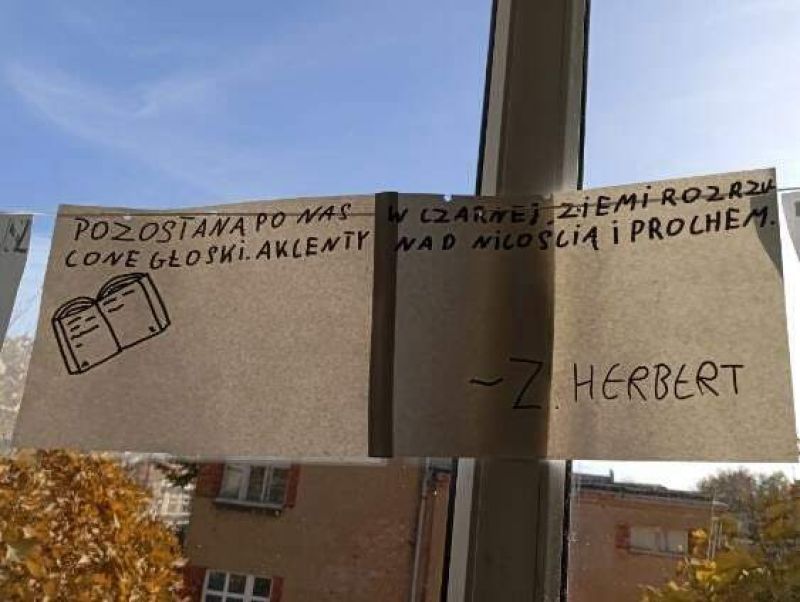 POZOSTANĄ PO NAS W CZARNEJ ZIEMI ROZRZU
CONE GŁOSKI. AKCENTY NAD NICOŚCIĄ I PROCHEM.
~Z. HERBERT